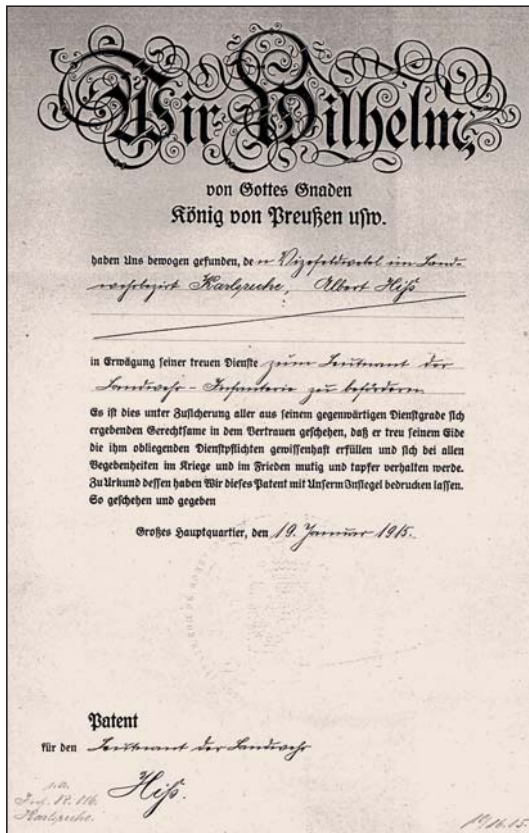 Wir Wilhelm,
von Gottes Gnaden
König von Preußen usw.
haben Uns bewogen gefunden, den Vizefeldwebel im Land-
wehrbezirk Karlsruhe, Albert Hiß
in Erwägung seiner treuen Dienste zum Leutnant der
Landwehr-Infanterie zu befördern
Es ist dies unter Zusicherung aller aus seinem gegenwärtigen Dienstgrade sich
ergebenden Gerechtsame in dem Vertrauen geschehen, daß er treu seinem Eide
die ihm obliegenden Dienstpflichten gewissenhaft erfüllen und sich bei allen
Begebenheiten im Kriege und im Frieden mutig und tapfer verhalten werde.
Zu Urkund dessen haben Wir dieses Patent mit Unserm Insiegel bedrucken lassen.
So geschehen und gegeben
Großes Hauptquartier, den 19. Januar 1915.
Patent
für den Leutnant der Landwehr
Hiß.
Karlsruhe.